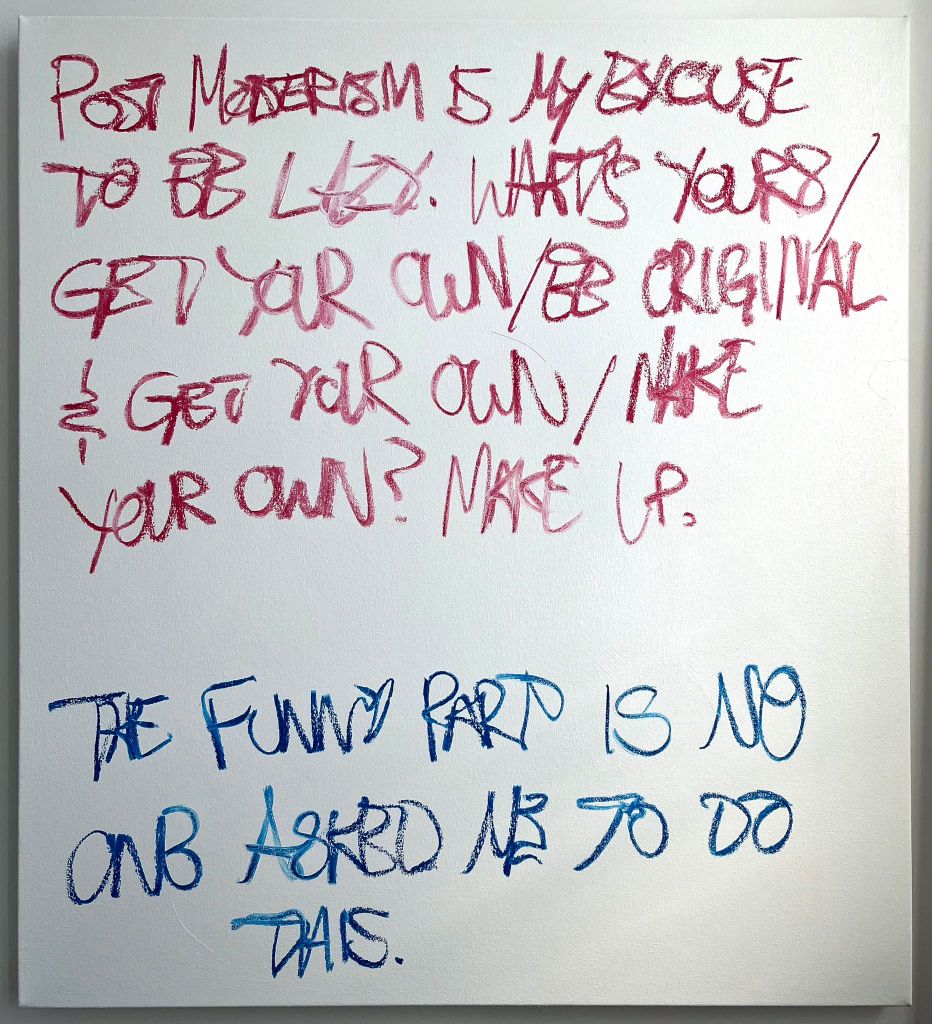 POST MODERISM IS MY EXCUSE
TO BE LAZY. WHATS YOURS/
GET YOUR OWN/BE ORIGINAL
& GET YOUR OWN/MAKE
YOUR OWN? MAKE UP.
THE FUNNY PART IS NO
ONE ASKED ME TO DO
THIS.